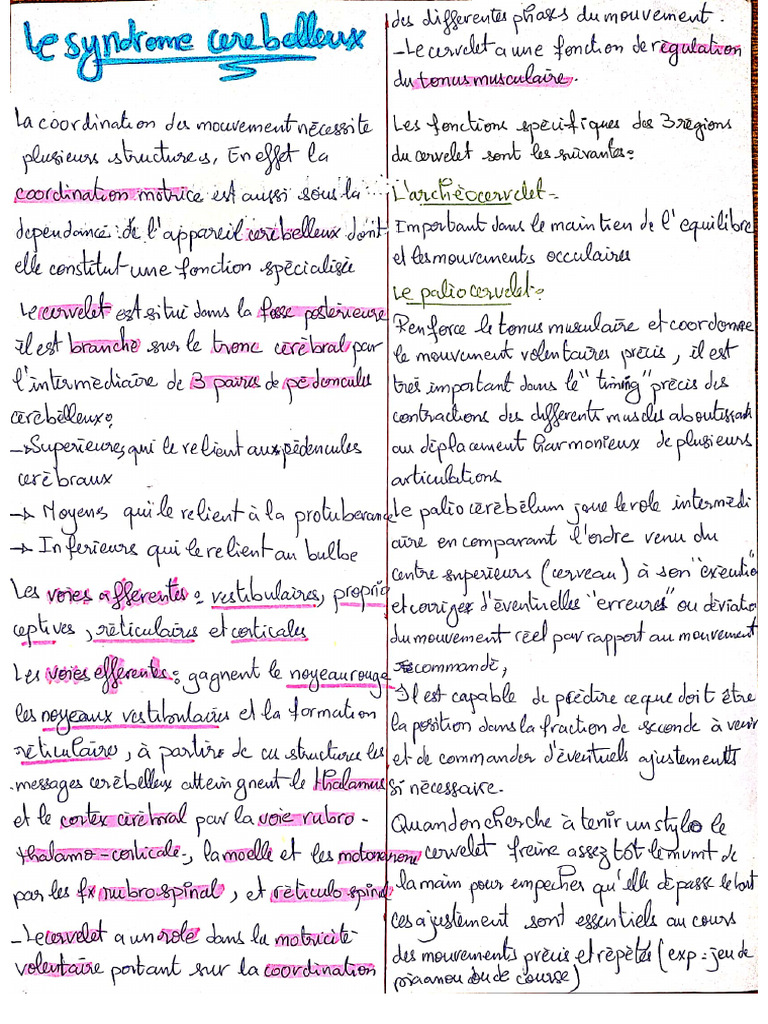 Le syndrome cerebelleux
La coordination des mouvement nécessite
plusieurs structures, En effet la
coordination motrice est aussi sous la
dependance de l'appareil cérébelleux dont
elle constitut une fonction spécialisée
Le cervelet est situé dans la fosse postérieure
il est branché sur le tronc cérébral par
l'intermédiaire de 3 paires de pédoncules
cérébélleux:
→ Superieures, qui le relient aux pédencules
cérébraux
→ Moyens qui le relient à la protuberance
→ Inferieurs qui le relient au bulbe
Les voies afferentes: vestibulaires, proprio
ceptives, réticulaires et corticales
Les voies efferentes: gagnent le noyeau rouge
les noyeaux vestibulaires et la formation
réticulaires, à partire de ces structures les
messages cérébelleux atteingnent le thalamus
et le cortex cérébral par la voie rubro-
thalamo-corticale, la moelle et les motoneurone
par les fx rubro spinal, et réticulo spinal
- Le cervelet a un role dans la motricité
volentaire portant sur la coordination
des differentes phases du mouvement.
- Le cervelet a une fonction de régulation
du tonus musculaire.
Les fonctions spécifiques des 3 régions
du cervelet sont les suivantes:
L'archéocervelet-
Important dans le maintien de l'equilibre
et les mouvements occulaires
Le paliocervelet:
Renforce le tonus musulaire et coordonne
le mouvement volentaires précis, il est
trés important dans le "timing" précis des
contractions des differents muscles aboutissant
au déplacement harmonieux de plusieurs
articulations
Le palio cérébélum joue le role intermédi
aire en comparant l'ordre venu du
centre superieurs (cerveau) à son "exécution
et corriger d'éventuelles "erreures" ou déviatio
du mouvement réel par rapport au mouvement
commandé,
Il est capable de prédire ce que doit être
la position dans la fraction de seconde à venir
et de commander d'éventuels ajustements
si nécessaire.
Quand on cherche à tenir un stylo le
cervelet freine assez tot le mvmt de
la main pour empecher qu'elle dépasse le but
ces ajustement sont essentiels au cours
des mouvements précis et répétés (exp: jeu de
piaanou ou de course)